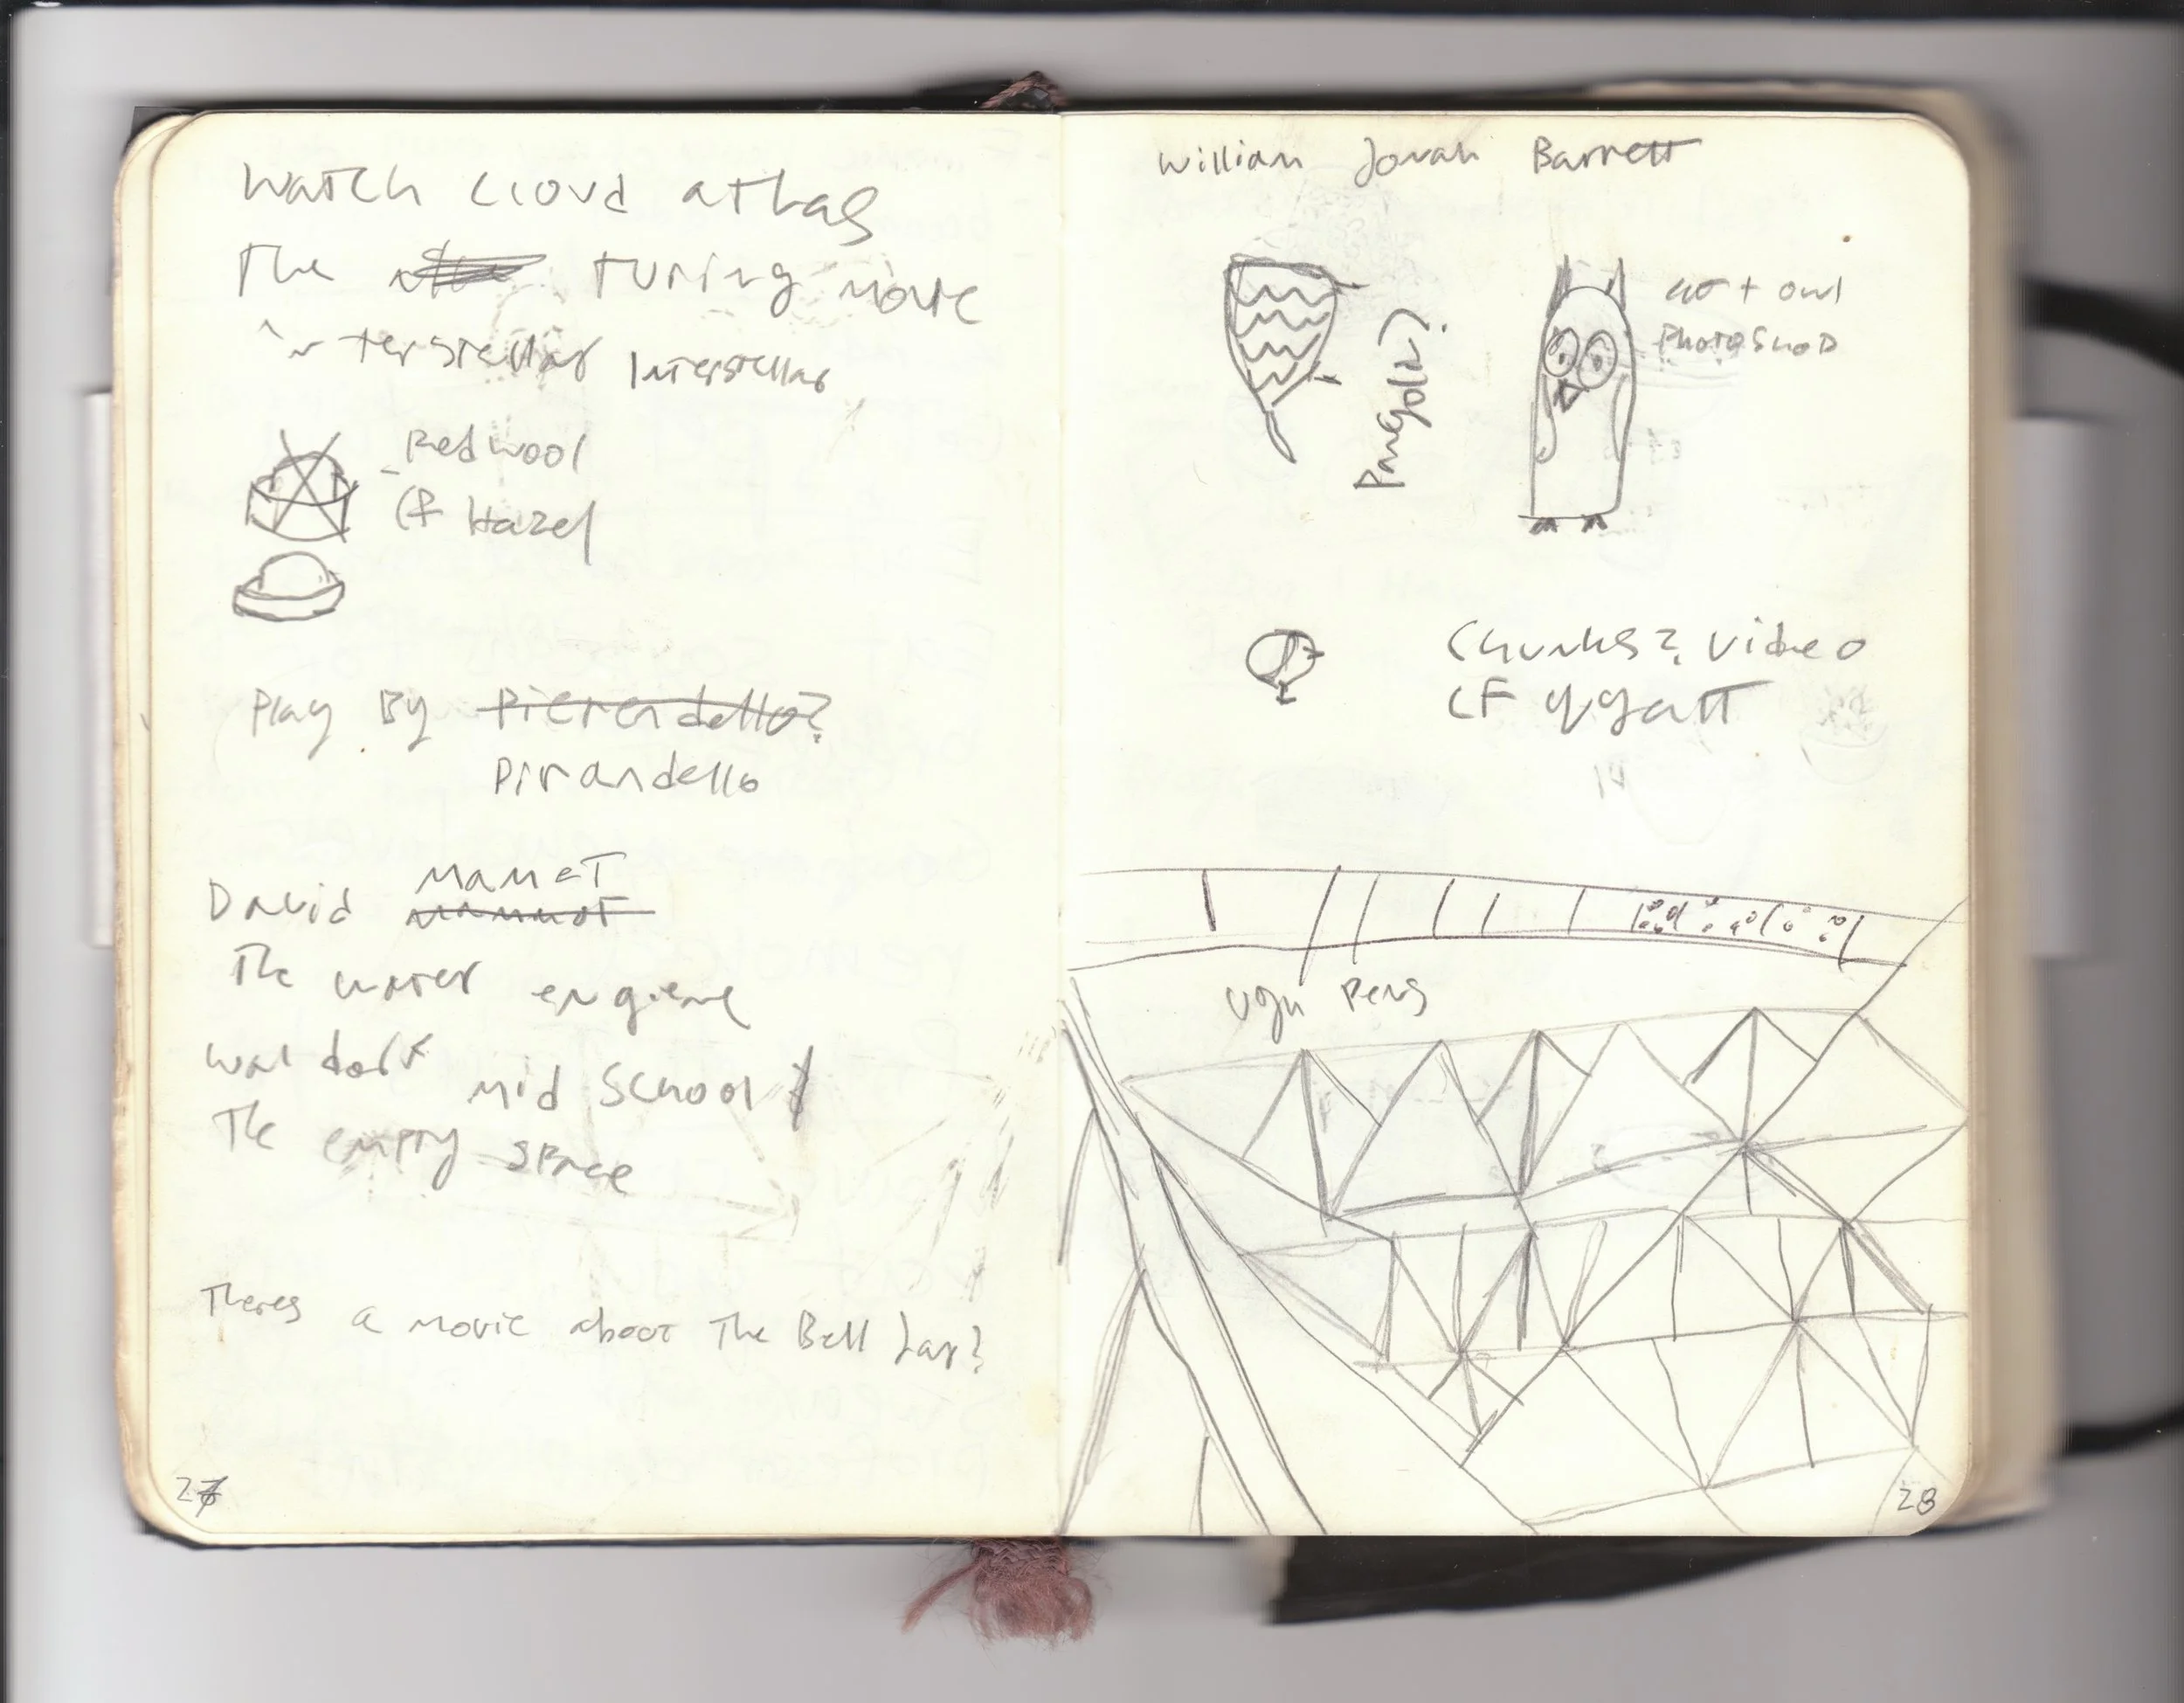 Watch cloud athas
The turing movie
interstellar Interstellar
Red wool
Cf Hazel
Play By Pierendello?
Pirandello
David Mamet
The water engiene
Waldorf mid School
The empty space
Theres a movie about The Bell Jar?
27
William Jonah Barrett
Pangolin?
cat + owl
Photoshop
Chunks? Video
CF
Ugh Pens
28